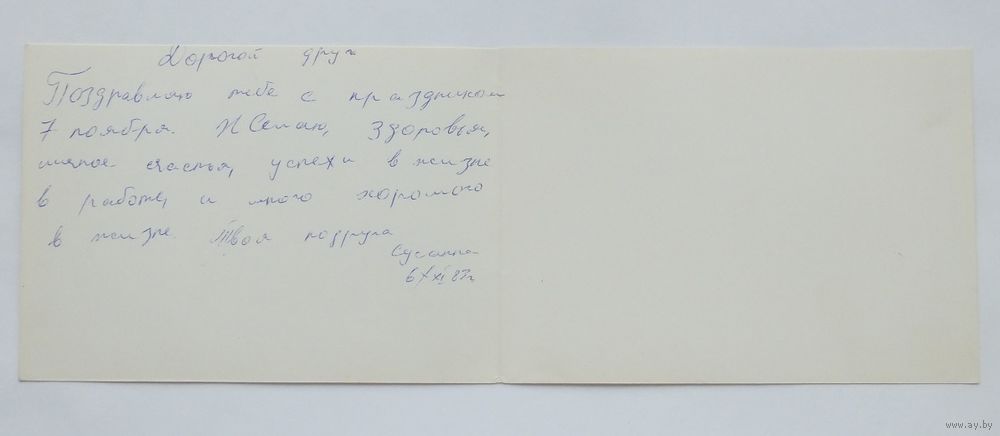 Дорогой друг
Поздравляю тебе с праздником
7 ноября. Желаю, здоровья,
счастья, успехи в жизне
в работе, и много хорошого
в жизне. Твоя подруга
Сусанна
6/XI 83г
www.ay.by